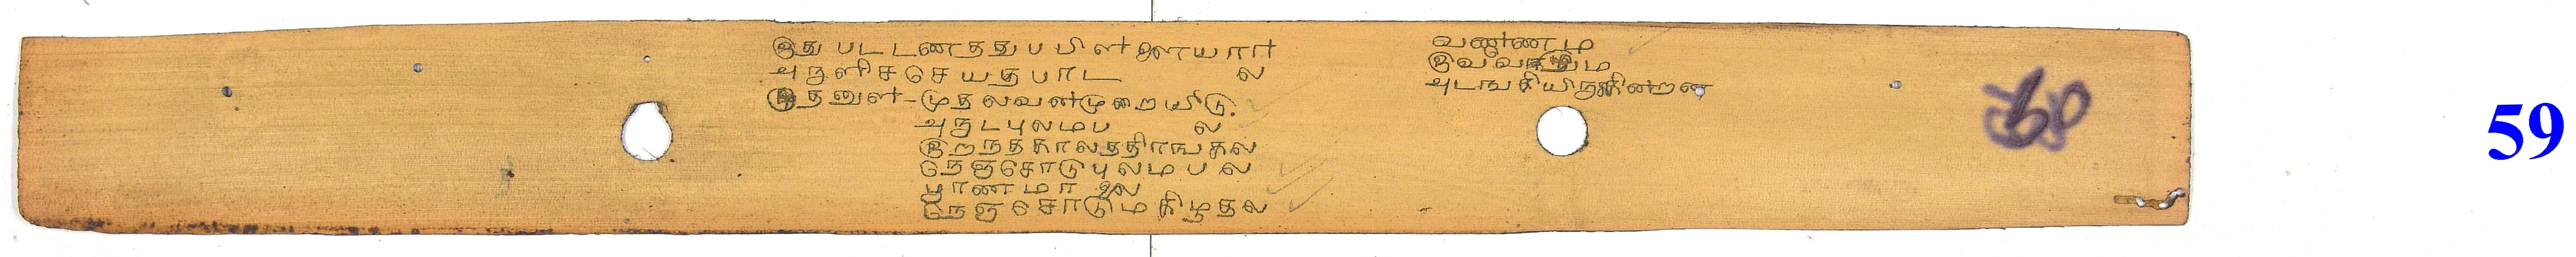 இது பட்டணத்துப்பிள்ளையார்
அருளிச்செய்த பாடல்
இதனுள் - முதல்வன் முறையீடு.
அருட்புலம்பல்
இறந்தகாலத்திரங்கல்
நெஞ்சொடு புலம்பல்
பூரணமாலை
நெஞ்சொடு மகிழ்தல்
வண்ணம்
இவ்வாறும்
அடங்கியிருக்கின்றன
59